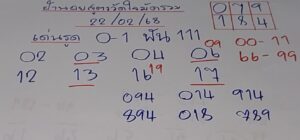 บ้านดงสูตรวัดใจมัดรวม
22/02/68
0 7 9
1 8 4
เด่นรูด 0-1 ฟัน 111
02 03 04 06 09 00-11
12 13 16 19 17 66-99
094 014 914
894 018 789